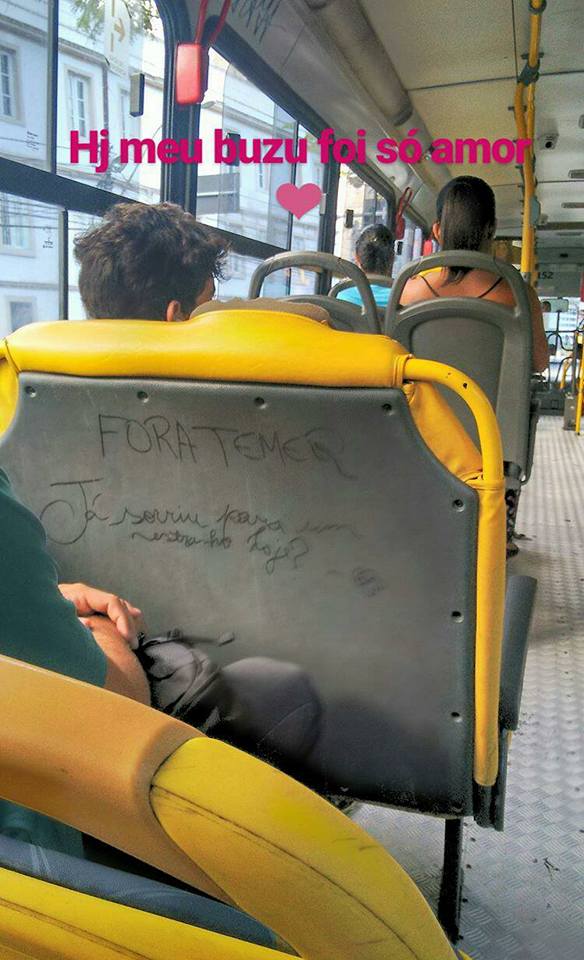 Hj meu buzu foi só amor
152
FORA TEMER
Já sorriu para um
estranho hoje?